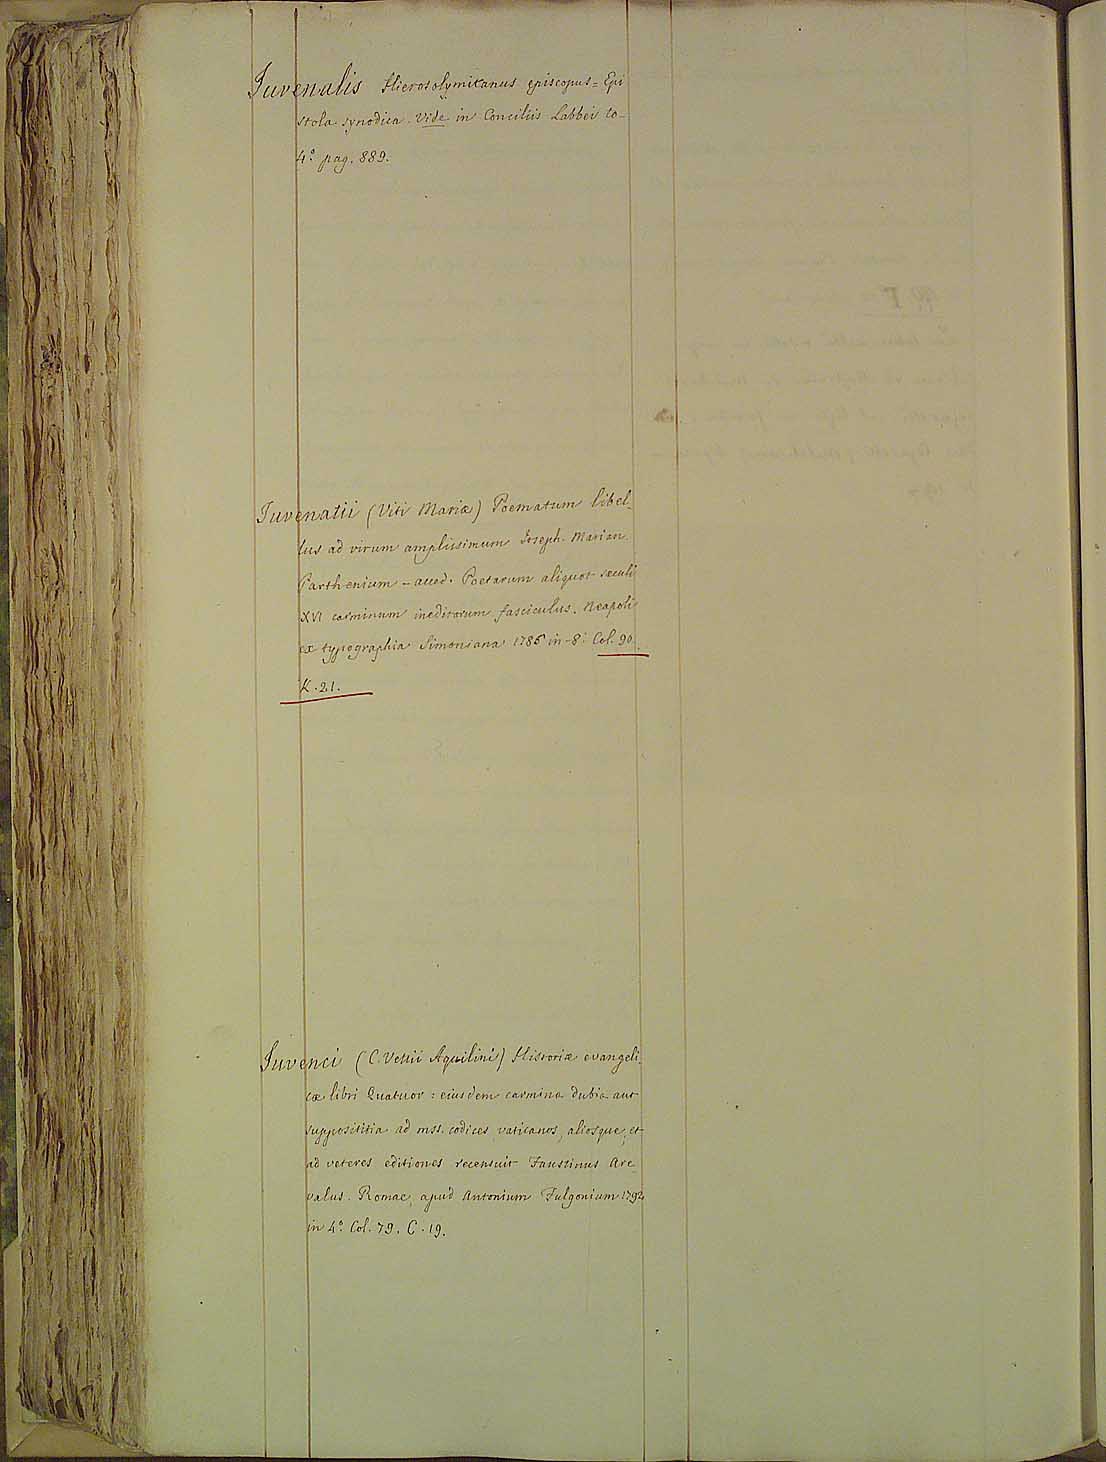 Juvenalis Hierosolymitanus episcopus = Epi
stola synodica. Vide in Conciliis Labbei to-
4.° pag. 889.
Juvenatii (Viti Mariæ) Poematum libel_
lus ad virum amplissimum Joseph. Marian.
Parthenium - acced. Poetarum aliquot sæculi
XVI carminum ineditorum fasciculus. Neapoli
ex typographia Simoniana 1786 in-8.° Col. 90.
K. 21.
Juvenci (C. Vettii Aquilini) Historiæ evangeli_
cæ libri Quatuor : eiusdem carmina dubia aut
supposititia ad mss. codices vaticanos, aliosque, et
ad veteres editiones recensuit Faustinus Are_
valus. Romae, apud Antonium Fulgonium 1792
in 4.° Col. 79. C. 19.